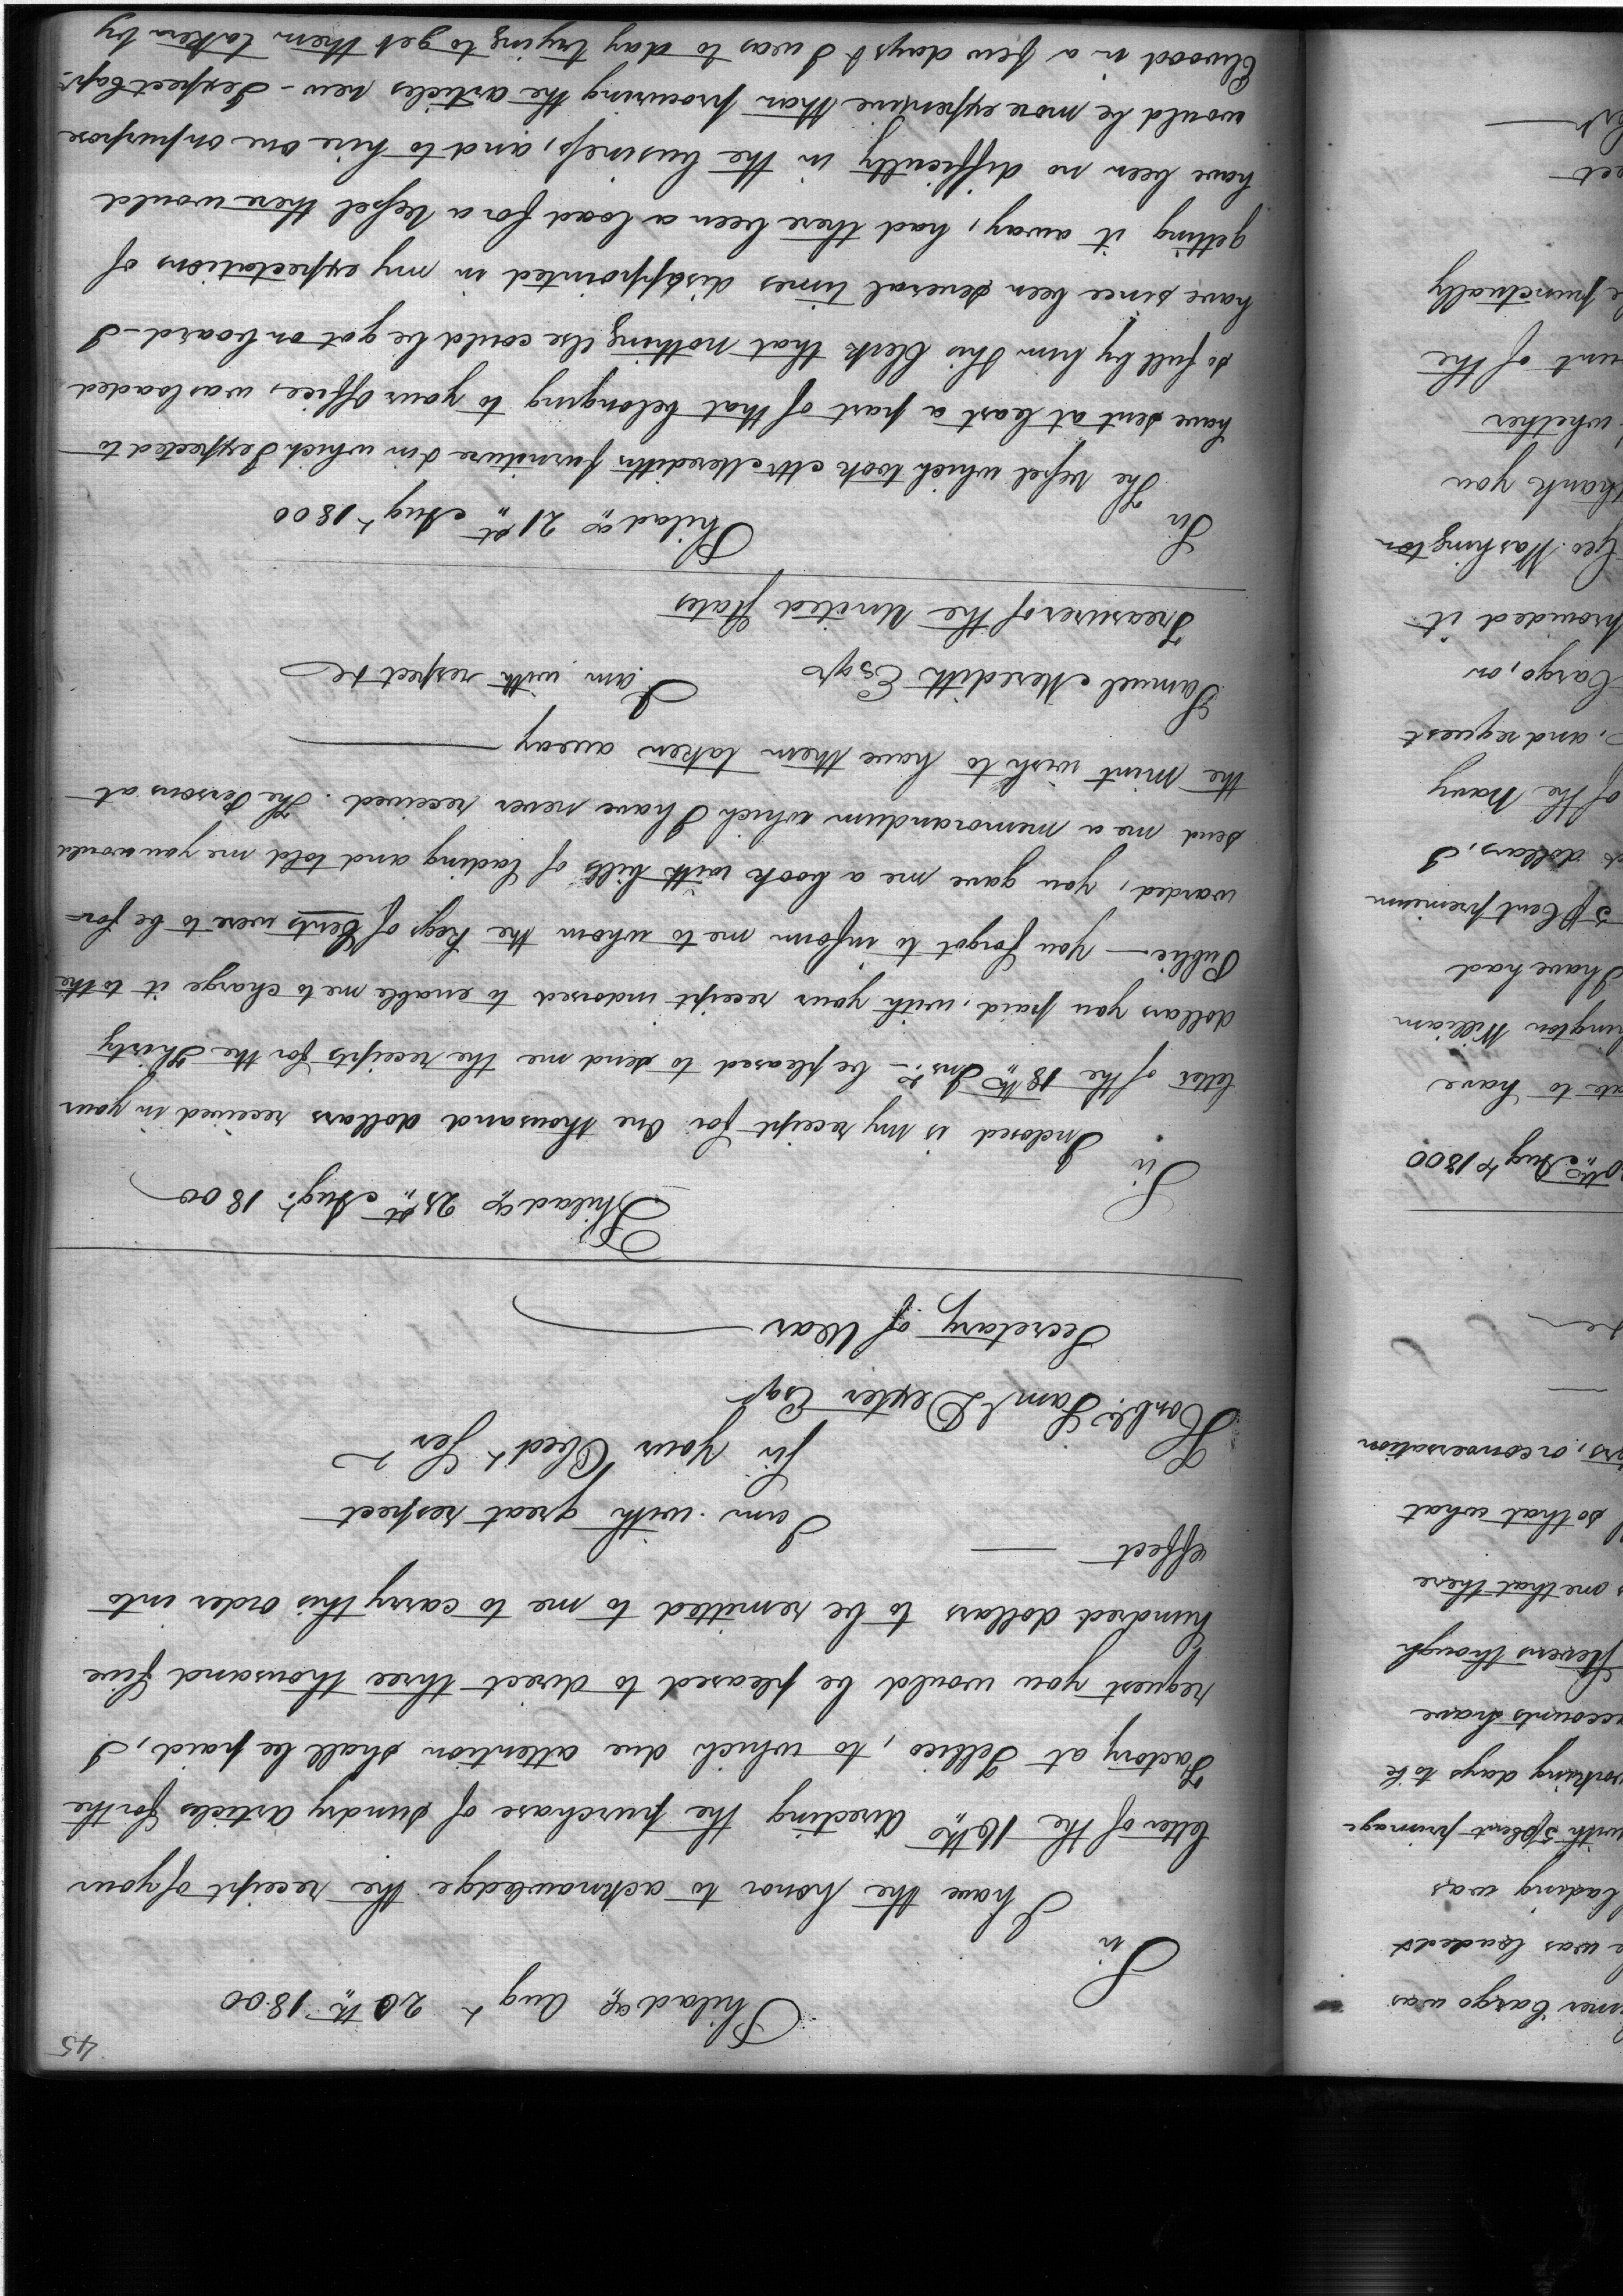 45
Philada Augt 20th 1800
Sir
I have the honor to acknowledge the receipt of your
letter of the 16th directing the purchase of sundry articles for the
Factory at Tellico, to which due attention shall be paid, I
request you would be pleased to direct three thousand five
hundred dollars to be remitted to me to carry this order into
effect —
I am with great respect
Sir Your Obedt Ser
Honble. Saml Dexter Esqr
Secretary of War
Philada 21st Augt 1800
Sir
Inclosed is my receipt for One thousand dollars received in your
letter of the 18th Inst. — be pleased to send me the receipts for the Thirty
dollars you paid, with your receipt indorsed to enable me to charge it to the
Public — You forgot to inform me to whom the Kegs of Cents were to be for=
warded, you gave me a book with bills of lading and told me you would
send me a memorandum which I have never received. The Persons at
the mint wish to have them taken away —
Samuel Meredith Esqr I am with respect &c
Treasurer of the United States
Philada 21st Augt 1800
Sir
The Vessel which took Mr Merediths furniture & in which I expected to
have sent at least a part of that belonging to your Office, was loaded
so full by him & his Clerk that nothing else could be got on board — I
have since been several times disappointed in my expectations of
getting it away, had there been a load for a Vessel there would
have been no difficulty in the business, and to hire one on purpose
would be more expensive than procuring the articles new — I expect Capt.
Elwood in a few days & I was to day trying to get them taken by
mer Cargo was
was loaded &
lading was
with 5 pCent primage
working days to be
accounts have
Stevens though
one that there
so that what
or conversation
Augt 1800
to have
William
I have had
5 pCent premium
dollars, I
of the Navy
, and request
Cargo, on
provided it
Geo. Washington
thank you
whether
of the
punctually